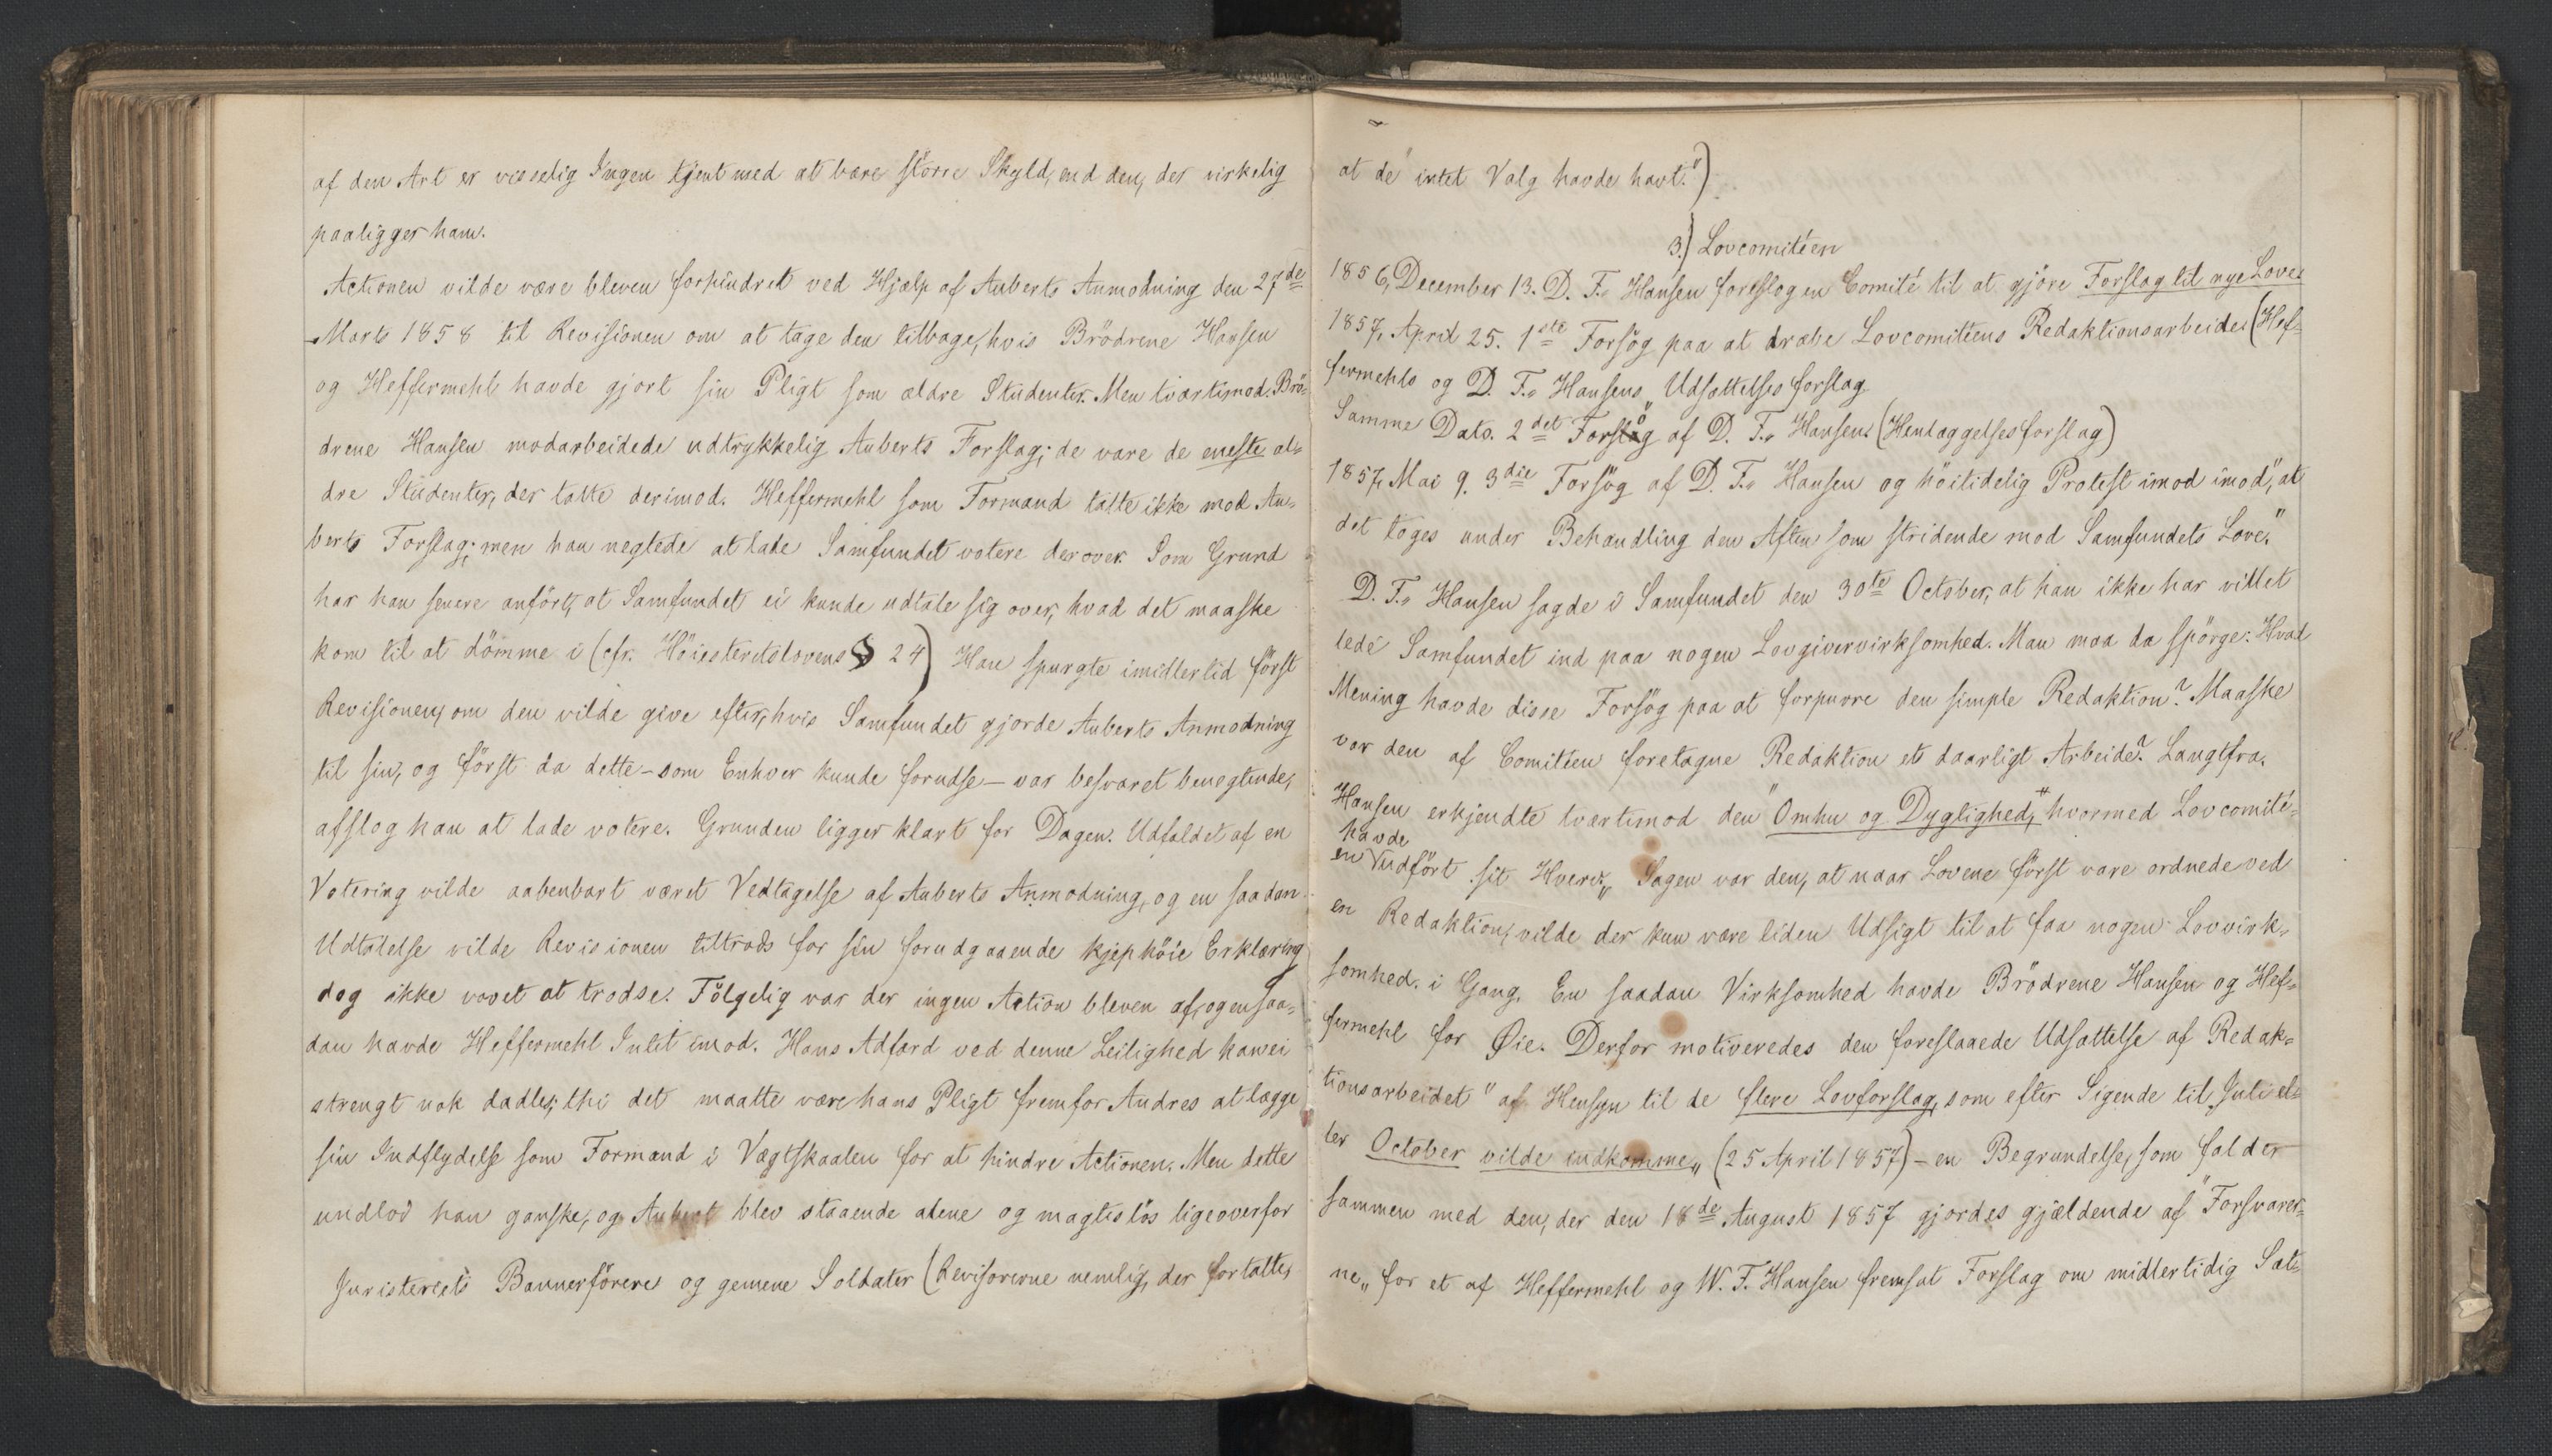 af den Art er visselig Ingen tjent med at bære större Skyld, end den, der virkelig
paaligger ham.
Actionen vilde være bleven forhindret ved Hjælp af Auberts Anmodning den 27de
Marts 1858 til Revisionen om at tage den tilbage, hvis Brödrene Hansen
og Heffermehl havde gjort sin Pligt som ældre Studenter. Men tvertimod. Brö-
drene Hansen modarbeidede udtrykkelig Auberts Forslag; de vare de eneste æl-
dre Studenter, der talte derimod. Heffermehl som Formand talte ikke mod Au-
berts Forslag; men han negtede at lade Samfundet votere derover. Som Grund
har han senere anfört, at Samfundet ei kunde udtale sig over, hvad det maaske
kom til at dömme i (cfr. Höiesteretslovens § 24) Han spurgte imidlertid först
Revisionen, om den vilde give efter, hvis Samfundet gjorde Auberts Anmodning
til sin, og först da dette – som Enhver kunde forudse – var besvaret benegtende,
afslog han at lade votere. Grunden ligger klart for Dagen. Udfaldet af en
Votering vilde aabenbart været Vedtagelse af Auberts Anmodning, og en saadan
Udtalelse vilde Revisionen tiltrods for sin forudgaaende kjephöie Erklæring
dog ikke vovet at trodse. Fölgelig var der ingen Action bleven af, og en saa-
dan havde Heffermehl Intet imod. Hans Adfærd ved denne Leilighed kan ei
strengt nok dadles, thi det maatte være hans Pligt fremfor Andres at lægge
sin Indflydelse som Formand i Vægtskaalen for at hindre Actionen. Men dette
undlod han ganske, og Aubert blev staaende alene og magtislös ligeoverfor
Juristeriets Bannerförere og gemene Soldater (Revisorerne nemlig, der fortalte,
at de "intet Valg havde havt.")
3.) Lovcomitéen
1856, December 13. D. F. Hansen foreslog en Comité til at gjöre Forslag til nye Love
1857, April 25. 1ste Forsög paa at dræbe Lovcomitéens Redaktionsarbeide (Hef-
fermehls og D. F. Hansens Udsættelsesforslag
Samme Dato. 2det Forsög af D. F. Hansen (Henlæggelsesforslag)
1857, Mai 9. 3die Forsög af D. F. Hansen og höitidelig Protest imod imod", at
det toges under Behandling den Aften som stridende mod Samfundets Love."
D. F. Hansen sagde i Samfundet den 30te October, at han ikke har villet
lede Samfundet ind paa nogen Lovgivervirksomhed. Man maa da spörge: Hvad
Mening havde disse Forsög paa at forpurre den simple Redaktion? Maaske
var den af Comitéen foretagne Redaktion et daarligt Arbeide? Langtfra.
Hansen erkjendte tvertimod den "Omhu og Dyglighed," hvormed Lovcomité-
havde
en udfört sit Hverv. Sagen var den, at naar Lovene först vare ordnede ved
en Redaktion, vilde der kun være liden Udsigt til at faa nogen Lovvirk-
somhed i Gang. En saadan Virksomhed havde Brödrene Hansen og Hef-
fermehl for Øie. Derfor motiveredes den foreslaaede Udsættelse af Redak-
tionsarbeidet "af Hensyn til de flere Lovforslag, som efter Sigende til Juli el-
ler October vilde indkomme" (25 April 1857) – en Begrundelse, som falder
sammen med den, der den 18de August 1857 gjordes gjældende af "Forsvarer-
ne" for et af Heffermehl og W. F. Hansen fremsat Forslag om midlertidig Sæt-